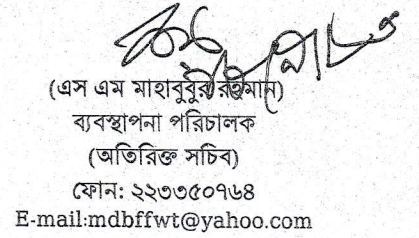 (এস এম মাহাবুবুর রহমান)
ব্যবস্থাপনা পরিচালক
(অতিরিক্ত সচিব)
ফোন: ২২৩৩৫০৭৬৪
E-mail:mdbffwt@yahoo.com